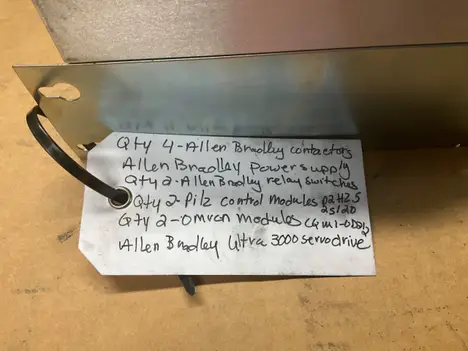 Qty 4-Allen Bradley contactors
Allen Bradley power supply
Qty 2-Allen Bradley relay switches
Qty 2-Pilz control modules
Qty 2-Omron modules
Allen Bradley Ultra 3000 servo drive